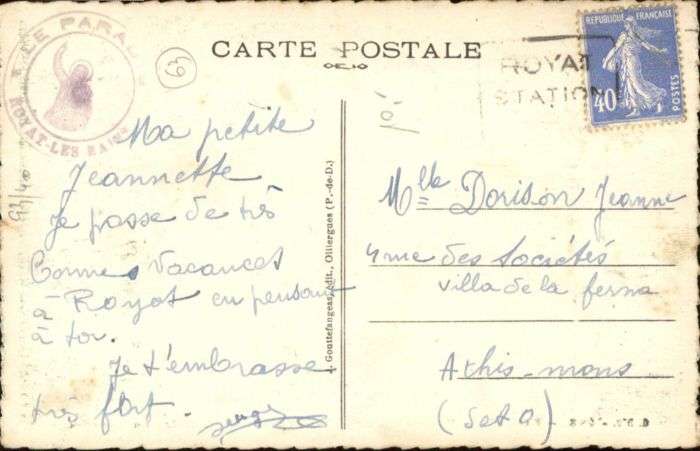 CARTE POSTALE
LE PARA
ROYAT-LES BAINS
63
REPUBLIQUE FRANÇAISE
40
POSTES
ROYAT
STATION
Ma petite
Jeannette
je passe de très
bonnes vacances
à Royat en pensant
à toi.
Je t'embrasse
très fort.
Serge
Gouttefangeas, édit., Olliergues (P.-de-D.)
Mlle Dorison Jeanne
4 rue des Sociétés
villa de la ferna
Athis-mons
(S et O)